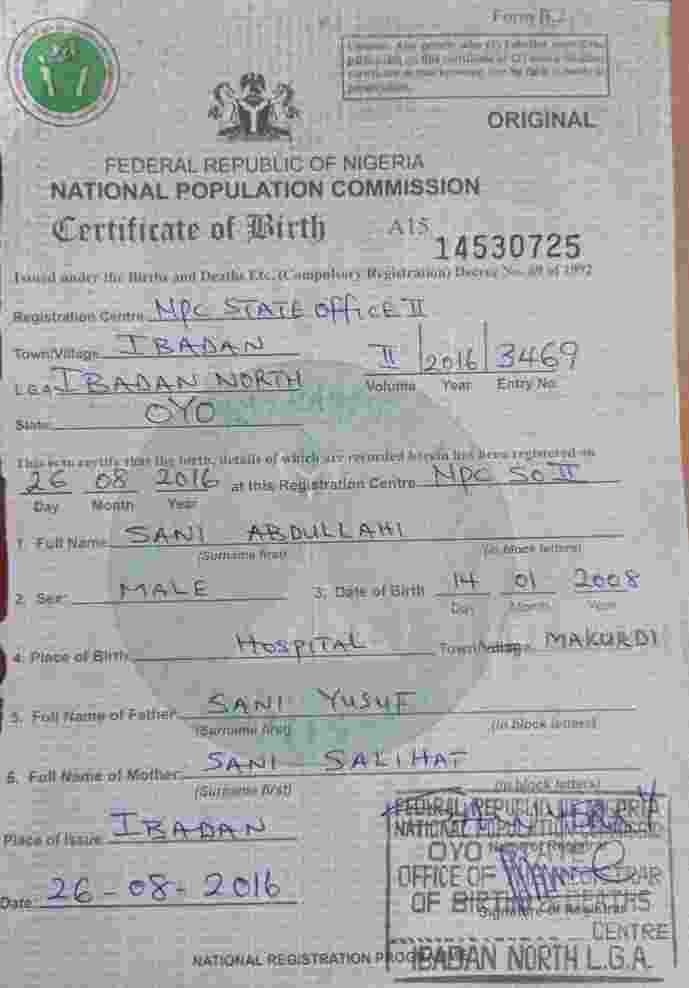 Form B.2
ORIGINAL
FEDERAL REPUBLIC OF NIGERIA
NATIONAL POPULATION COMMISSION
Certificate of Birth A15 14530725
Issued under the Births and Deaths Etc. (Compulsory Registration) Decree No. 69 of 1992
Registration Centre NPC STATE OFFICE II
Town/Village IBADAN
L.G.A IBADAN NORTH
II 2016 3469
Volume Year Entry No.
State OYO
This is to certify that the birth, details of which are recorded herein has been registered on
26 08 2016 at this Registration Centre NPC SO II
Day Month Year
1. Full Name SANI ABDULLAHI
(Surname first) (in block letters)
2. Sex: MALE 3. Date of Birth 14 01 2008
Day Month Year
4. Place of Birth HOSPITAL Town/Village MAKURDI
5. Full Name of Father SANI YUSUF
(Surname first) (in block letters)
6. Full Name of Mother SANI SALIHAT
(Surname first) (in block letters)
Place of Issue IBADAN
Date 26-08-2016
FEDERAL REPUBLIC OF NIGERIA
NATIONAL POPULATION
OYO STATE
OFFICE OF REGISTRAR
OF BIRTHS & DEATHS
Signature of Registrar
CENTRE
IBADAN NORTH L.G.A.
NATIONAL REGISTRATION